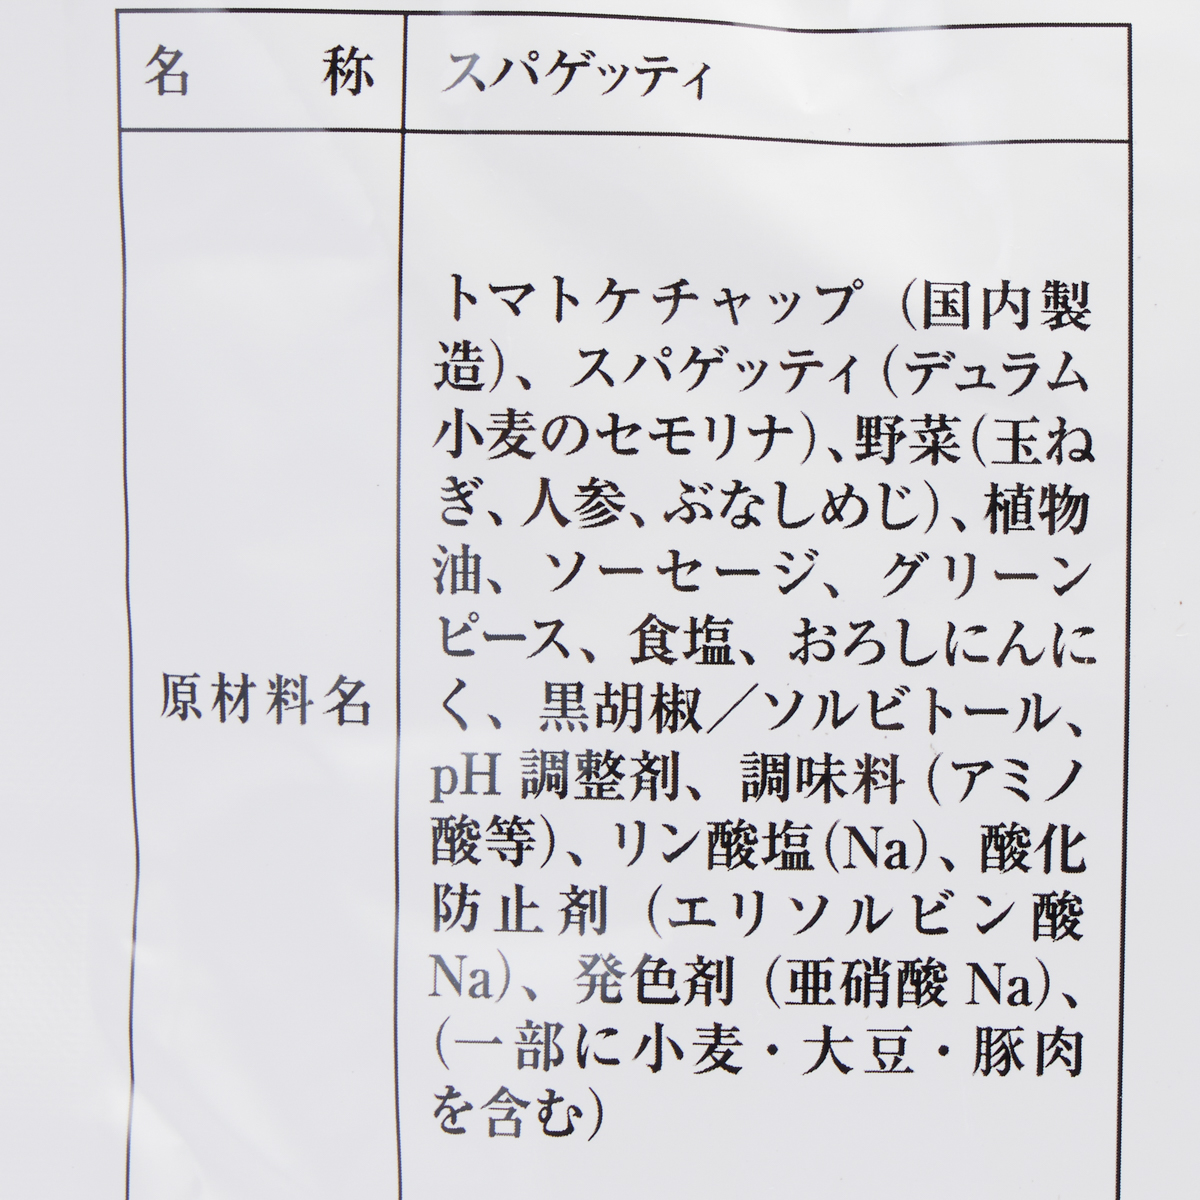 名称 スパゲッティ
原材料名
トマトケチャップ（国内製
造）、スパゲッティ（デュラム
小麦のセモリナ）、野菜（玉ね
ぎ、人参、ぶなしめじ）、植物
油、ソーセージ、グリーン
ピース、食塩、おろしにんに
く、黒胡椒／ソルビトール、
pH調整剤、調味料（アミノ
酸等）、リン酸塩（Na）、酸化
防止剤（エリソルビン酸
Na）、発色剤（亜硝酸Na）、
（一部に小麦・大豆・豚肉
を含む）